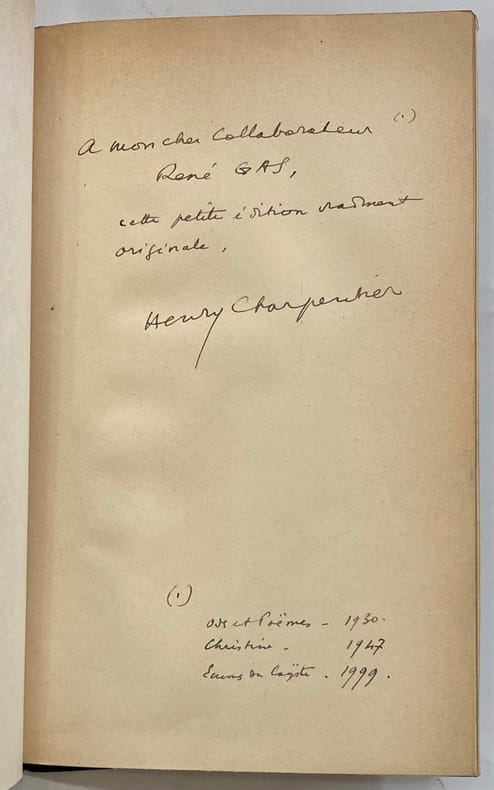 A mon cher Collaborateur (1)
René GAS,
cette petite édition vraiment
originale,
Henry Charpentier
(1)
Odes et Poëmes - 1930.
Christine - 1947
du - 1999.